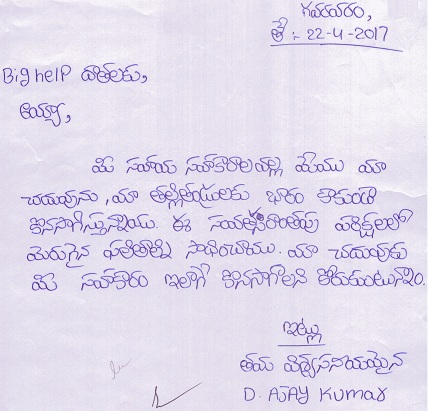 గవరవరం,
తే :- 22-4-2017
Bighelp దాతలకు,
అయ్యా,
మీ సహాయ సహకారాల వల్ల మేము మా
చదువును, మా తల్లిదండ్రులకు భారం కాకుండా
కొనసాగిస్తున్నాము. ఈ సంవత్సరాంతపు పరీక్షలలో
మెరుగైన ఫలితాల్ని సాధించాము. మా చదువులకు
మీ సహకారం ఇలాగే కొనసాగాలని కోరుకుంటున్నాం.
ఇట్లు
తమ విశ్వసనీయమైన
D. AJAY Kumar